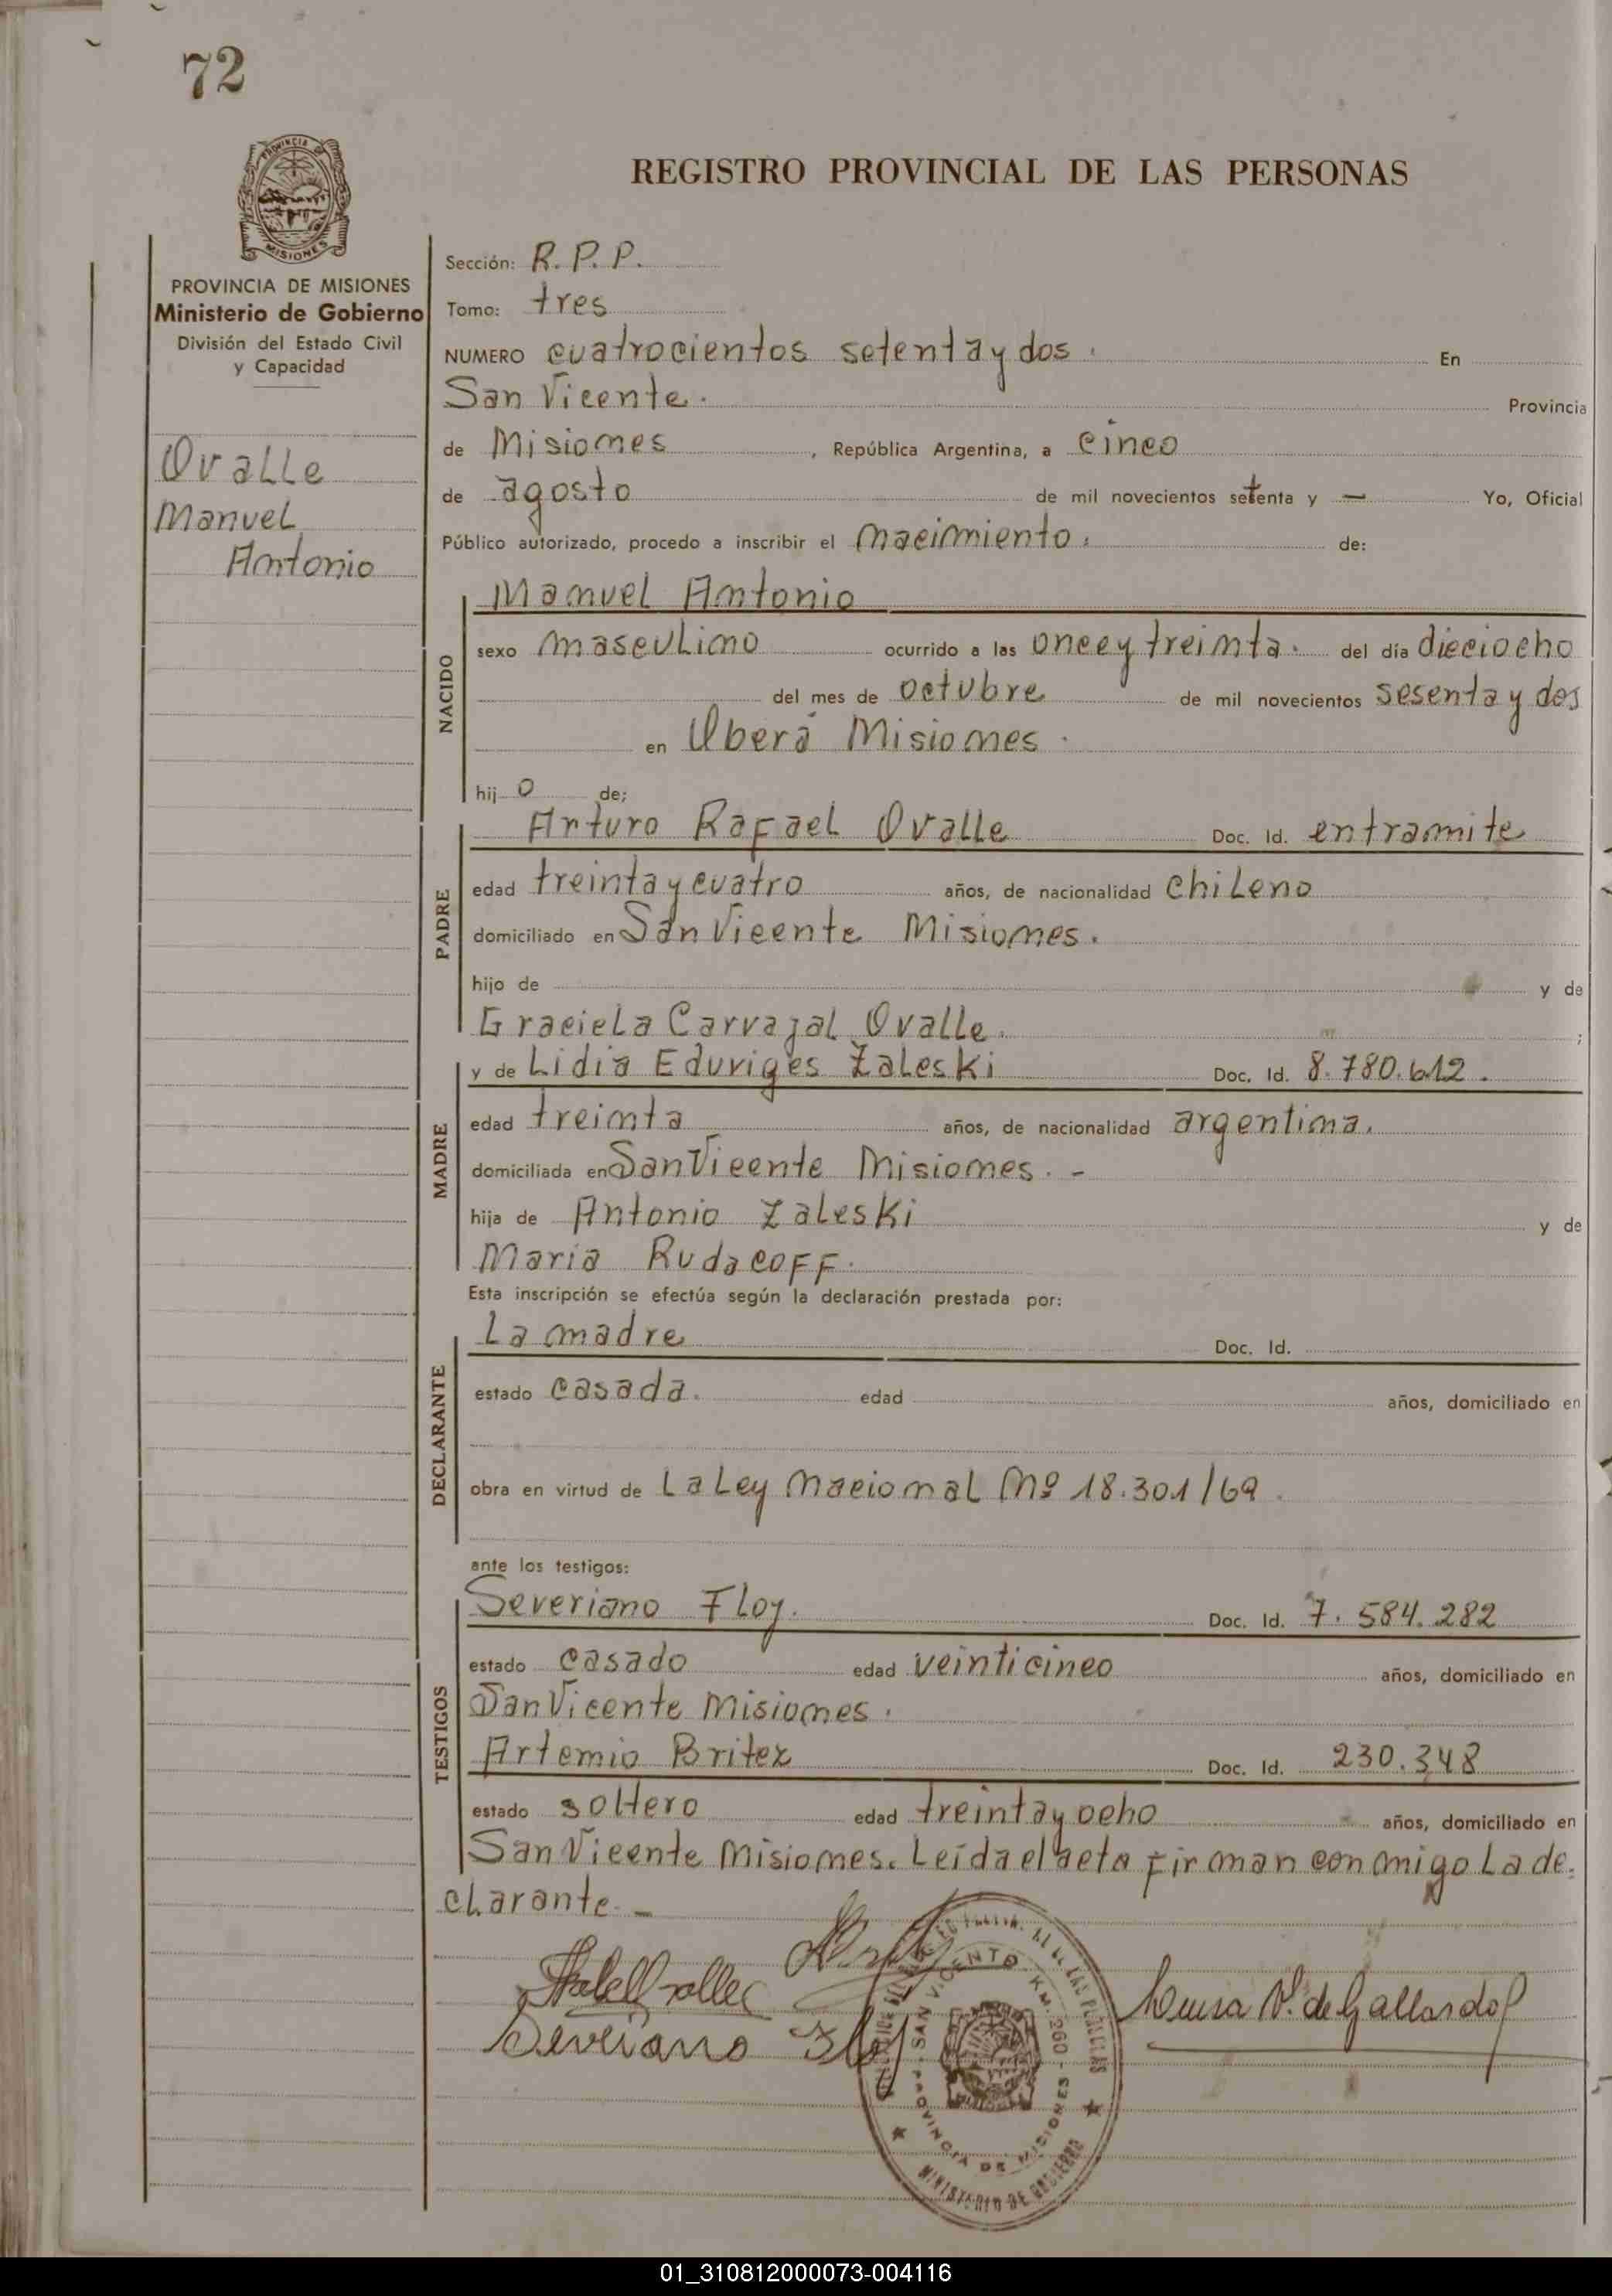 72
REGISTRO PROVINCIAL DE LAS PERSONAS
PROVINCIA DE MISIONES
Ministerio de Gobierno
División del Estado Civil
y Capacidad
Ovalle
Manuel
Antonio
Sección: R.P.P.
Tomo: tres
NUMERO cuatrocientos setenta y dos. En
San Vicente. Provincia
de Misiones, República Argentina, a cinco
de agosto de mil novecientos setenta y — Yo, Oficial
Público autorizado, procedo a inscribir el nacimiento. de:
NACIDO
Manuel Antonio
sexo masculino ocurrido a las once y treinta. del día dieciocho
del mes de octubre de mil novecientos sesenta y dos
en Oberá Misiones.
hijo de;
PADRE
Arturo Rafael Ovalle Doc. Id. entramite
edad treinta y cuatro años, de nacionalidad chileno
domiciliado en San Vicente Misiones.
hijo de y de
Graciela Carvajal Ovalle. ;
MADRE
y de Lidia Eduviges Zaleski Doc. Id. 8.780.612.
edad treinta años, de nacionalidad argentina.
domiciliada en San Vicente Misiones. -
hija de Antonio Zaleski y de
Maria Rudacoff.
Esta inscripción se efectúa según la declaración prestada por:
DECLARANTE
La madre Doc. Id.
estado casada. edad años, domiciliado en
obra en virtud de La Ley Nacional Nº 18.301/69.
ante los testigos:
TESTIGOS
Severiano Floy. Doc. Id. 7.584.282
estado casado edad veinticinco años, domiciliado en
San Vicente Misiones.
Artemio Britez Doc. Id. 230.348
estado soltero edad treinta y ocho años, domiciliado en
San Vicente Misiones. Leída el acta firman conmigo La de-
clarante. -
Severiano Floy
Luisa V. de Gallardo
SAN VICENTE - KM. 260 - MISIONES
PROVINCIA DE MISIONES
MINISTERIO DE GOBIERNO
01_310812000073-004116